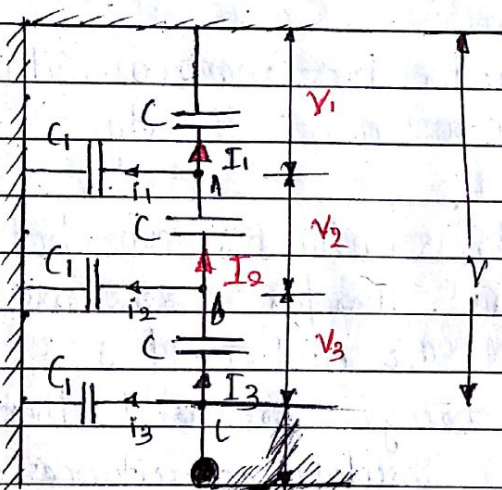 C
V₁
C₁
I₁
i₁
A
C
V₂
C₁
I₂
V
i₂
B
C
V₃
C₁
I₃
i₃
C